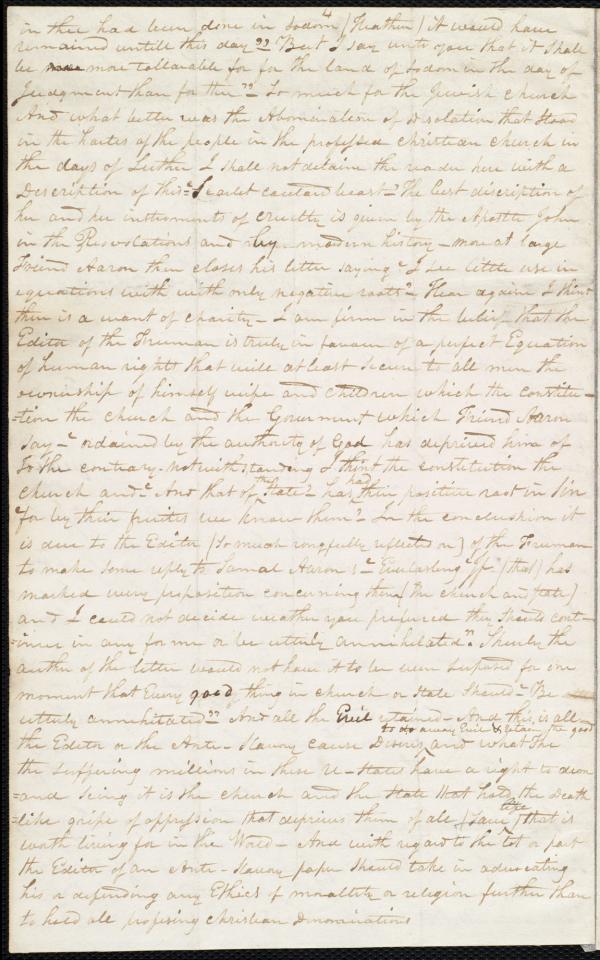 4
in thee had been done in Sodom (Heathen) it would have
remained untill this day" But I say unto you that it shall
be more tollarable for for the land of Sodom in the day of
Judgment than for the" So much for the Jewish church
And what better was the Abomination of Disolation that stood
in the hartes of the people in the professed christian church in
the days of Luther I shall not detaine the reader here with a
Description of this "Scarlet beast" The best discription of
her and her instrments of cruelty is given by the Apostle John
in the Revolations and by modern history - more at large
Friend Aaron then closes his letter saying "I see little use in
equations with with only negative roots" Hear againe I think
ther is a want of charity - I am firm in the belief that the
Editor of the Freeman is truly in favour of a perfect Equation
of human rights that will at least secure to all men the
ownership of himself wife and children which the constitu-
-tion the church and the Goverment which Friend Aaron
say - "ordained by the authority of God has deprived him of
To the contrary. Notwithstanding I think the constitution the
church and "And that of the State" has ther positive root in Sin
"for by their fruites we know them" In the conclusion it
is due to the Editor (so much rongfully reflected on) of the Freeman
to make some reply to Samal Aaron s "Everlasting if" (that) has
marked every proposition concerning them (the church and State)
and I could not decide weather you prefered they should cont-
-inue in any form or be utterly annihilated". Shurely the
auther of the letter would not have it to be even suposed for one
moment that Every good thing in church or State should "Be
utterly annihitated" And all the Evil retained - And this is all
to do away Evil & retain the good
the Editor or the Ante-Slavery cause Desires, and what the
the suffering millions in these U-States have a right to
-and seing it is the church and the State that hold the Death
-like gripe of oppression that deprives them of all (save life) that is
worth living for in the World - And with regard to the lot or part
the Editor of an Ante-Slavery paper should take in advocating
his or defending any Ethics of morallity or religion further than
to hold all profesing christian Denominations